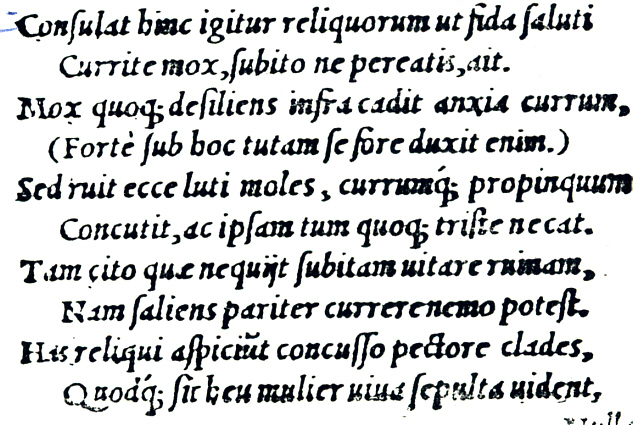 Conſulat hinc igitur reliquorum ut fida ſaluti
Currite mox, ſubito ne pereatis, ait.
Mox quoq; deſiliens infra cadit anxia currum,
(Fortè ſub hoc tutam ſe fore duxit enim.)
Sed ruit ecce luti moles, currumq́; propinquum
Concutit, ac ipſam tum quoq; triſte necat.
Tam cito quæ nequijt ſubitam uitare ruinam,
Nam ſaliens pariter currere nemo poteſt.
His reliqui aſpiciũt concuſſo pectore clades,
Quodq́; ſic heu mulier uiua ſepulta uident,